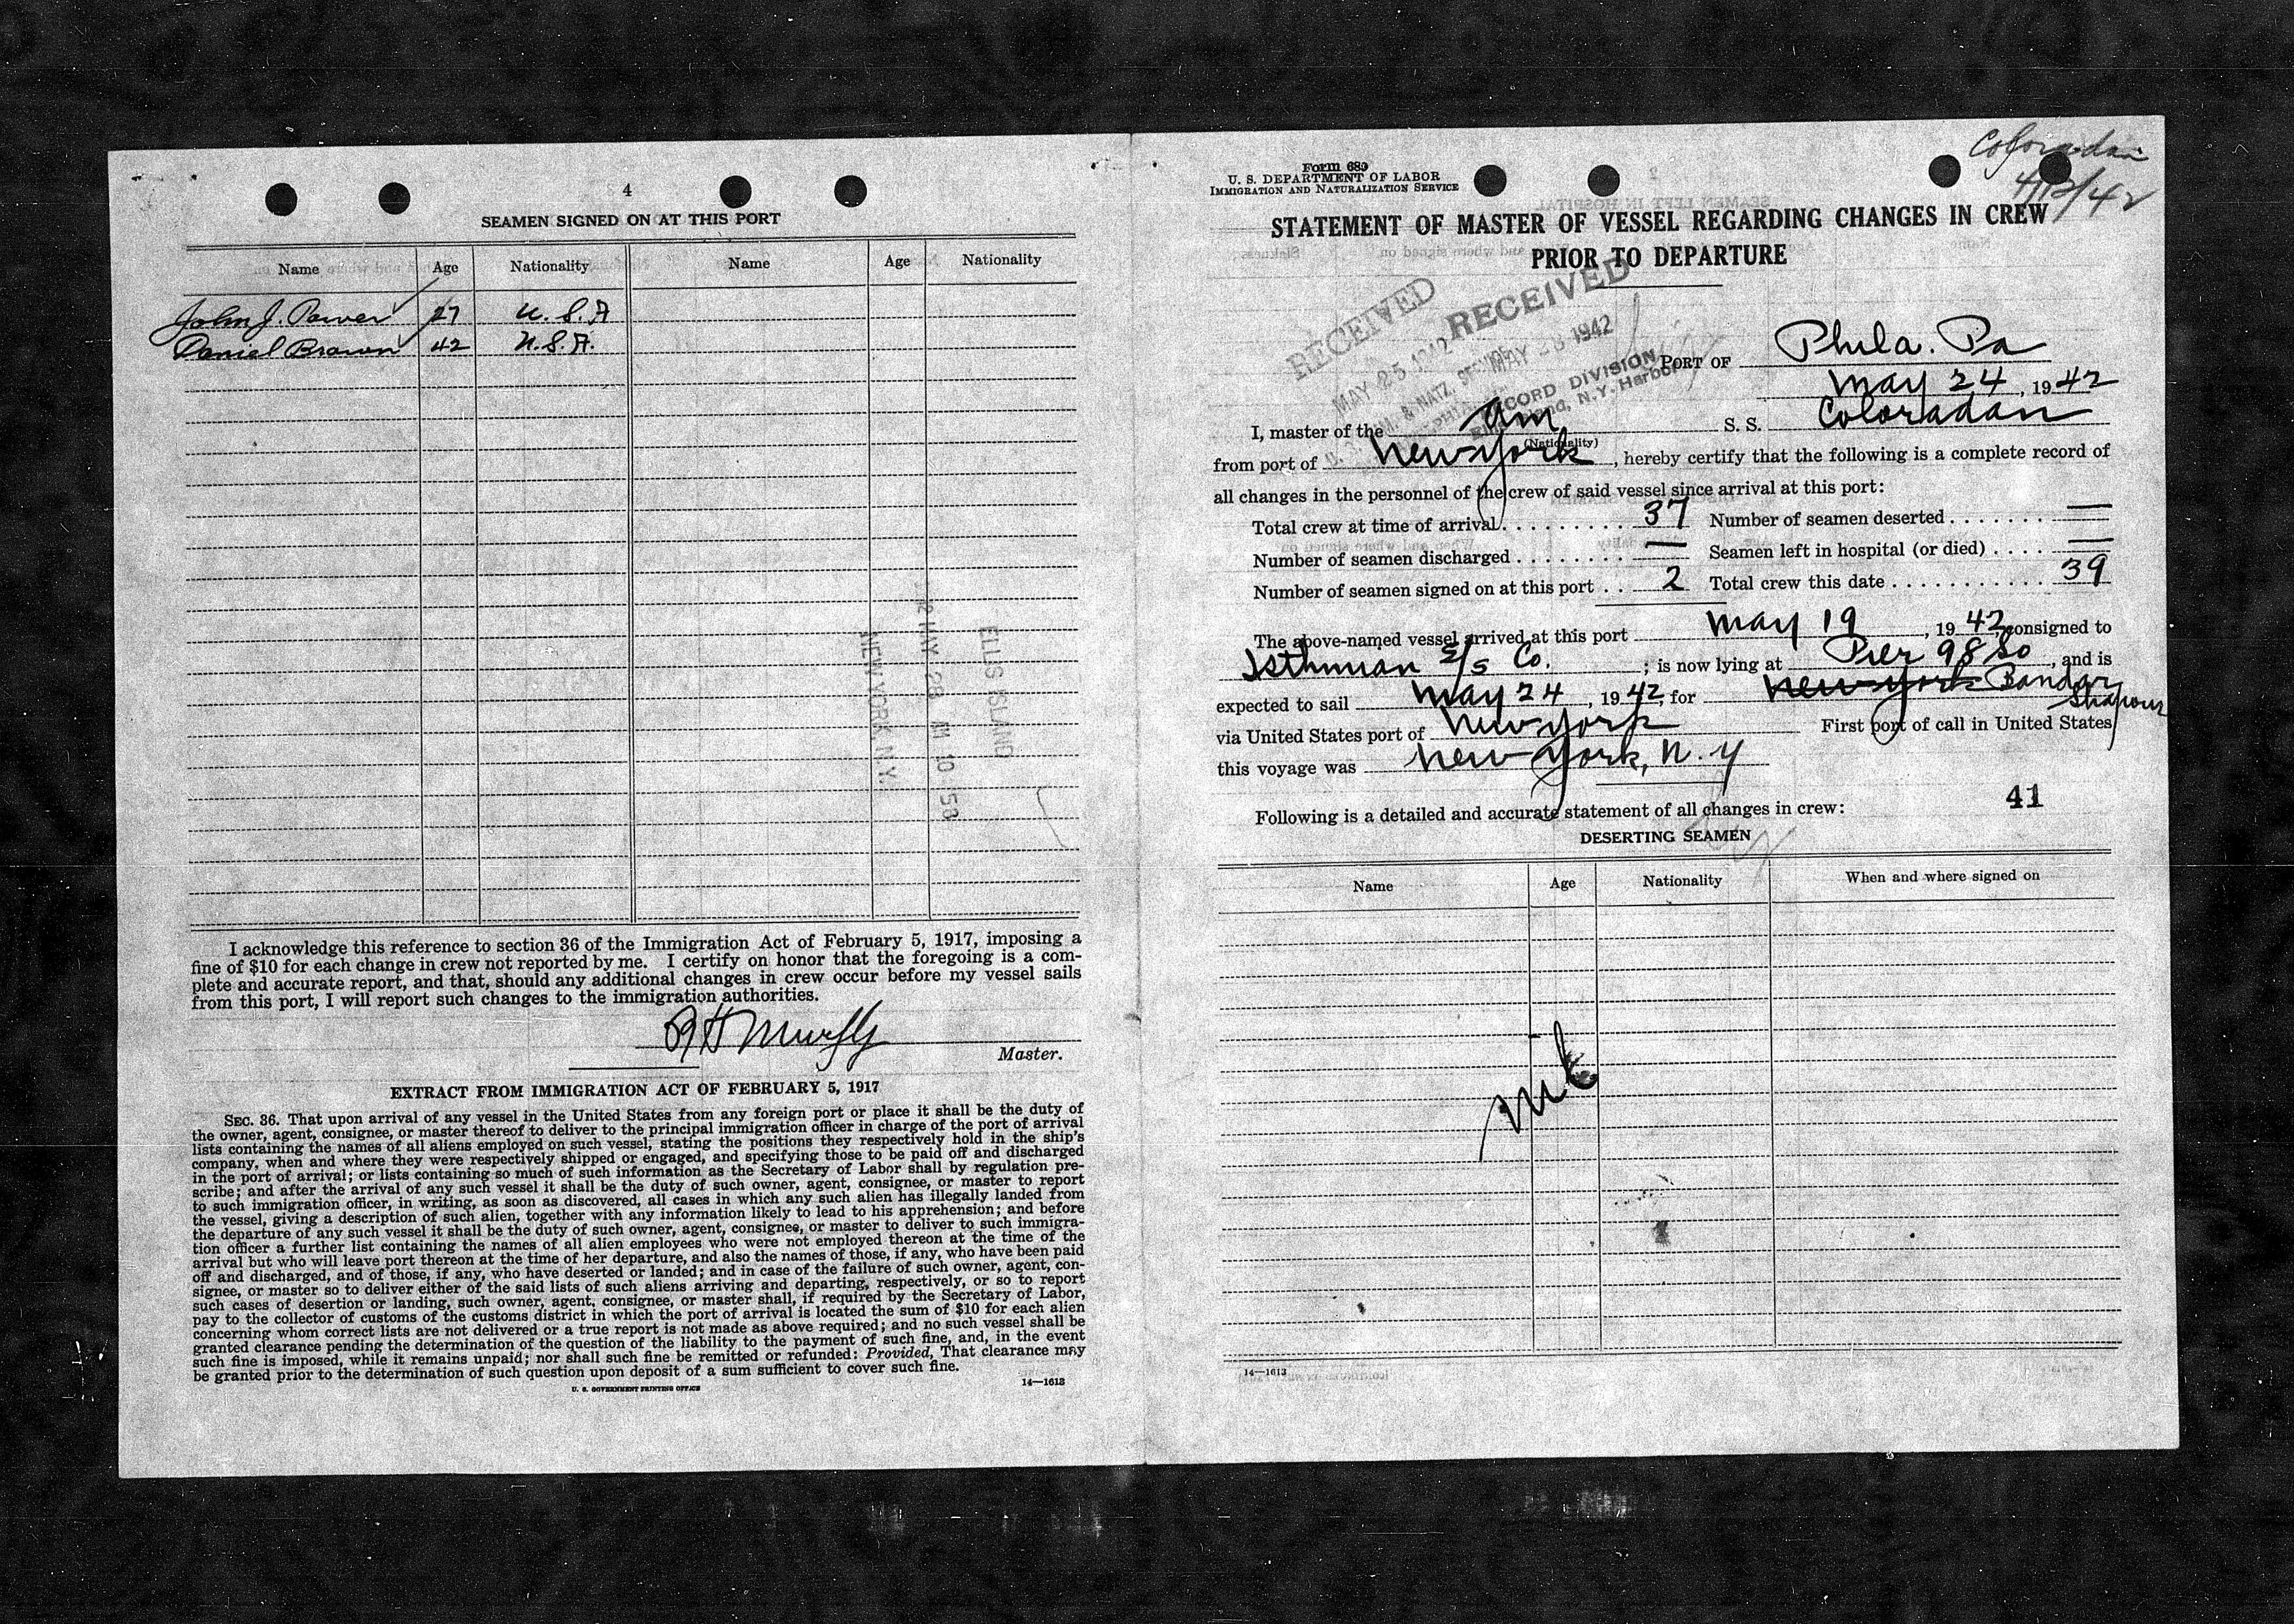 4
SEAMEN SIGNED ON AT THIS PORT
Name Age Nationality Name Age Nationality
John J. Power 27 U.S.A
Daniel Brown 42 U.S.A.
ELLIS ISLAND
MAY 28 AM 10 58
NEW YORK, N.Y.
I acknowledge this reference to section 36 of the Immigration Act of February 5, 1917, imposing a
fine of $10 for each change in crew not reported by me. I certify on honor that the foregoing is a com-
plete and accurate report, and that, should any additional changes in crew occur before my vessel sails
from this port, I will report such changes to the immigration authorities.
Murphy
Master.
EXTRACT FROM IMMIGRATION ACT OF FEBRUARY 5, 1917
SEC. 36. That upon arrival of any vessel in the United States from any foreign port or place it shall be the duty of
the owner, agent, consignee, or master thereof to deliver to the principal immigration officer in charge of the port of arrival
lists containing the names of all aliens employed on such vessel, stating the positions they respectively hold in the ship's
company, when and where they were respectively shipped or engaged, and specifying those to be paid off and discharged
in the port of arrival; or lists containing so much of such information as the Secretary of Labor shall by regulation pre-
scribe; and after the arrival of any such vessel it shall be the duty of such owner, agent, consignee, or master to report
to such immigration officer, in writing, as soon as discovered, all cases in which any such alien has illegally landed from
the vessel, giving a description of such alien, together with any information likely to lead to his apprehension; and before
the departure of any such vessel it shall be the duty of such owner, agent, consignee, or master to deliver to such immigra-
tion officer a further list containing the names of all alien employees who were not employed thereon at the time of the
arrival but who will leave port thereon at the time of her departure, and also the names of those, if any, who have been paid
off and discharged, and of those, if any, who have deserted or landed; and in case of the failure of such owner, agent, con-
signee, or master so to deliver either of the said lists of such aliens arriving and departing, respectively, or so to report
such cases of desertion or landing, such owner, agent, consignee, or master shall, if required by the Secretary of Labor,
pay to the collector of customs of the customs district in which the port of arrival is located the sum of $10 for each alien
concerning whom correct lists are not delivered or a true report is not made as above required; and no such vessel shall be
granted clearance pending the determination of the question of the liability to the payment of such fine, and, in the event
such fine is imposed, while it remains unpaid; nor shall such fine be remitted or refunded: Provided, That clearance may
be granted prior to the determination of such question upon deposit of a sum sufficient to cover such fine.
U. S. GOVERNMENT PRINTING OFFICE 14—1613
Coloradan
Form 689
U. S. DEPARTMENT OF LABOR
IMMIGRATION AND NATURALIZATION SERVICE
STATEMENT OF MASTER OF VESSEL REGARDING CHANGES IN CREW
PRIOR TO DEPARTURE
RECEIVED
MAY 25 1942
RECEIVED
MAY 28 1942
RECORD DIVISION
Ellis Island, N.Y. Harbor
PORT OF Phila. Pa
May 24, 1942
I, master of the Am S. S. Coloradan
(Nationality)
from port of New York, hereby certify that the following is a complete record of
all changes in the personnel of the crew of said vessel since arrival at this port:
Total crew at time of arrival 37 Number of seamen deserted —
Number of seamen discharged — Seamen left in hospital (or died) —
Number of seamen signed on at this port 2 Total crew this date 39
The above-named vessel arrived at this port May 19, 1942, consigned to
Isthmian S/S Co.; is now lying at Pier 98 So, and is
expected to sail May 24, 1942, for New York Bandar
Shapour
via United States port of New York First port of call in United States
this voyage was New York, N.Y
41
Following is a detailed and accurate statement of all changes in crew:
DESERTING SEAMEN
Name Age Nationality When and where signed on
14—1613